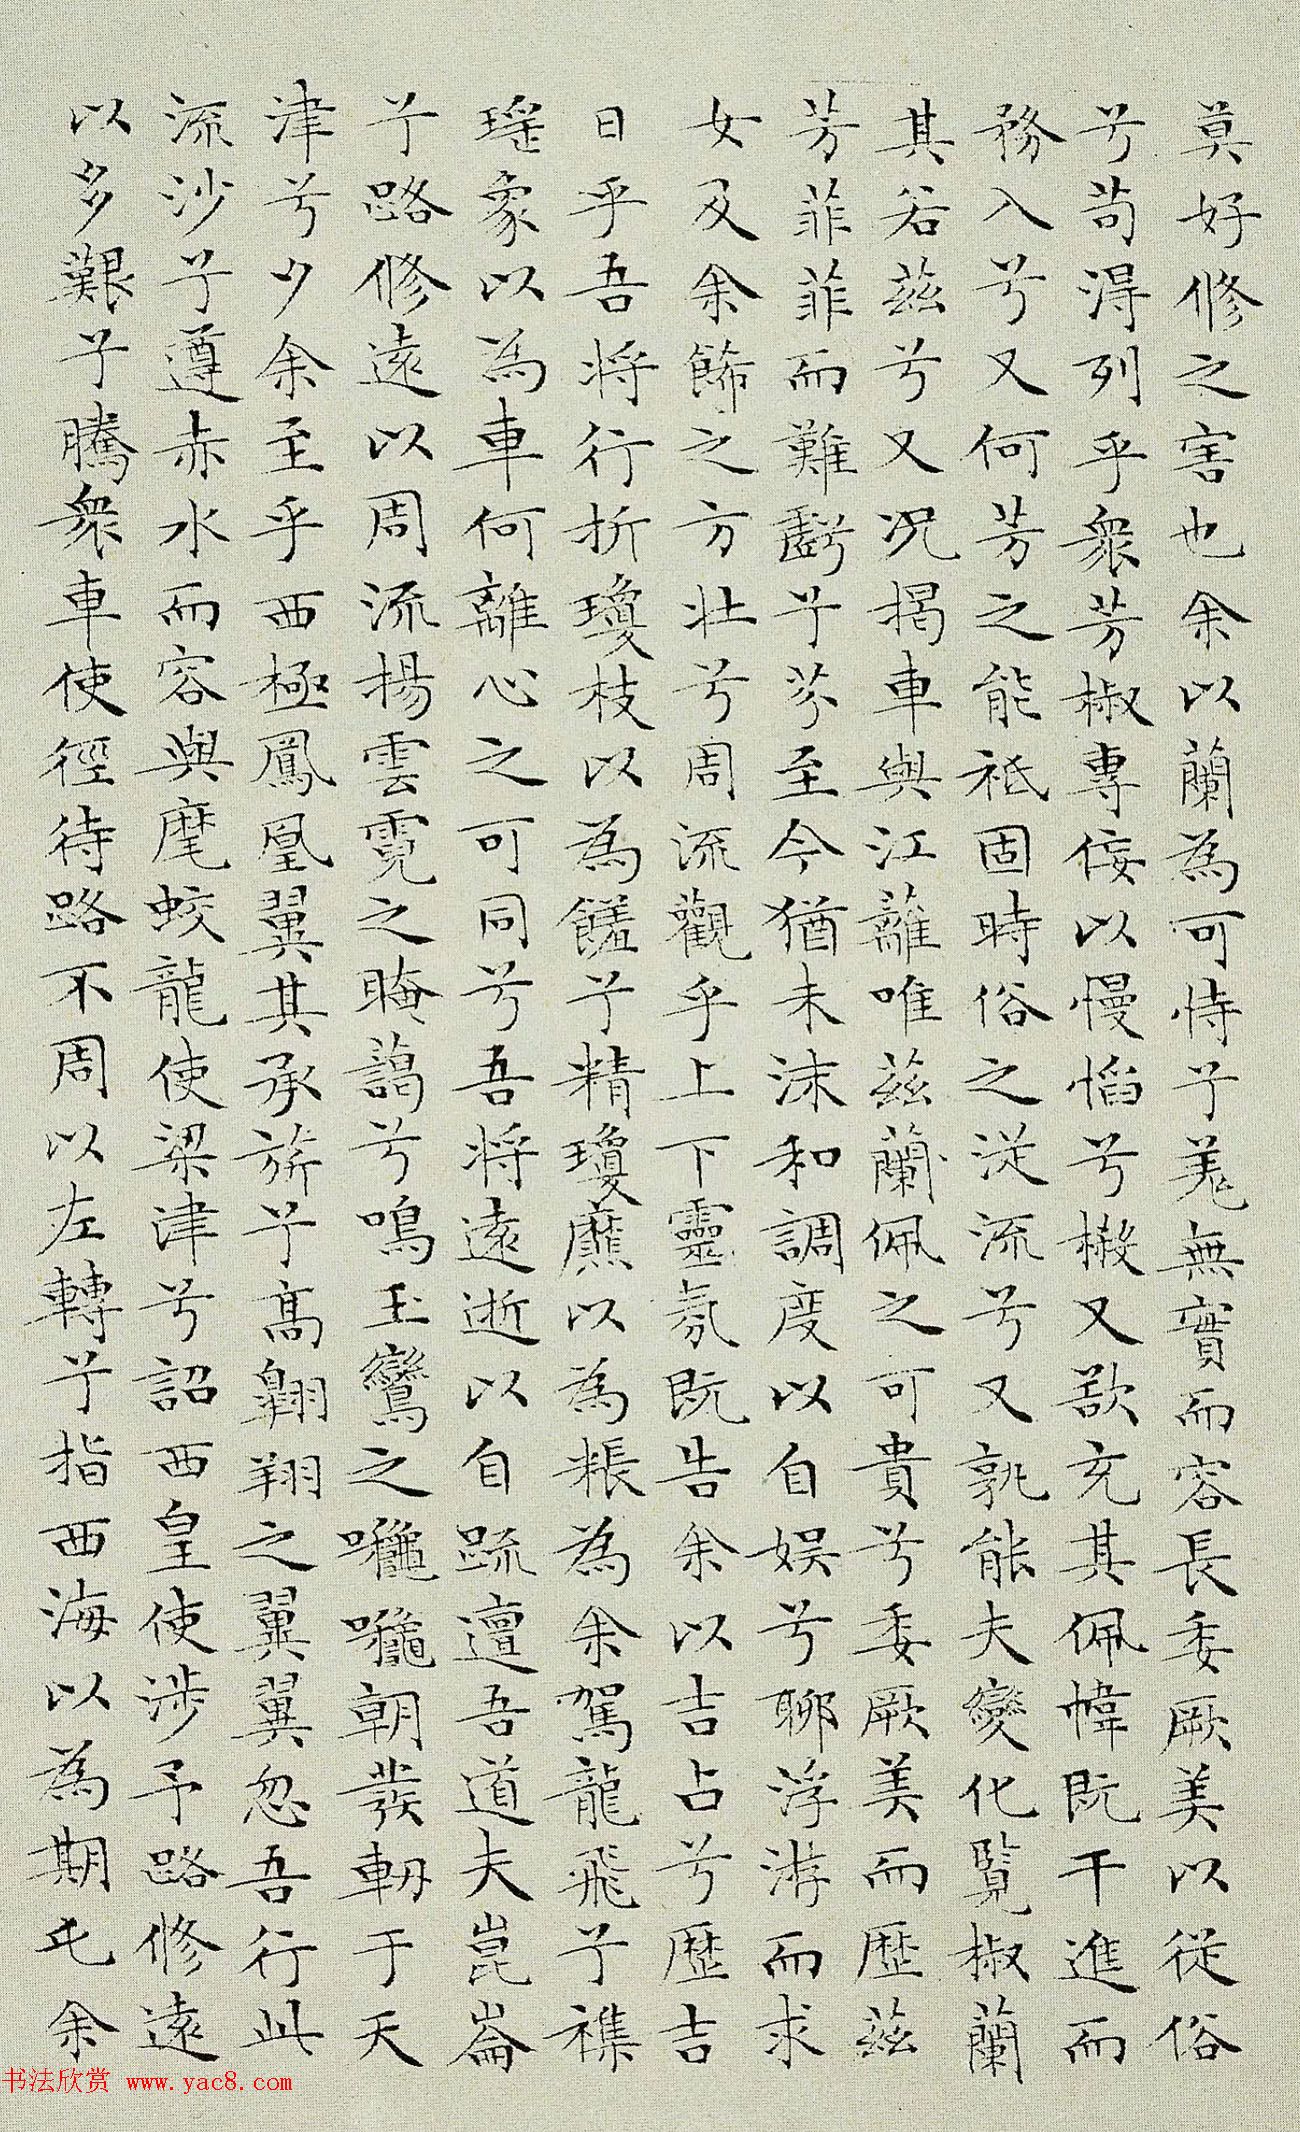 莫好修之害也余以蘭為可恃兮羌無實而容長委厥美以從俗
兮苟得列乎衆芳椒專佞以慢慆兮樧又欲充其佩幃既干進而
務入兮又何芳之能祗固時俗之從流兮又孰能夫變化覽椒蘭
其若茲兮又況揭車與江蘺唯茲蘭佩之可貴兮委厥美而歷茲
芳菲菲而難虧兮芬至今猶未沫和調度以自娛兮聊浮游而求
女及余飾之方壯兮周流觀乎上下靈氛既告余以吉占兮歷吉
日乎吾將行折瓊枝以為饈兮精瓊爢以為粻為余駕龍飛兮襍
瑤象以為車何離心之可同兮吾將遠逝以自疏邅吾道夫崑崙
兮路修遠以周流揚雲霓之晻藹兮鳴玉鸞之嚨嚨朝發軔于天
津兮夕余至乎西極鳳凰翼其承旂兮高翺翔之翼翼忽吾行此
流沙兮遵赤水而容與麾蛟龍使梁津兮詔西皇使涉予路修遠
以多艱兮騰衆車使徑待路不周以左轉兮指西海以為期屯余
书法欣赏 www.yac8.com